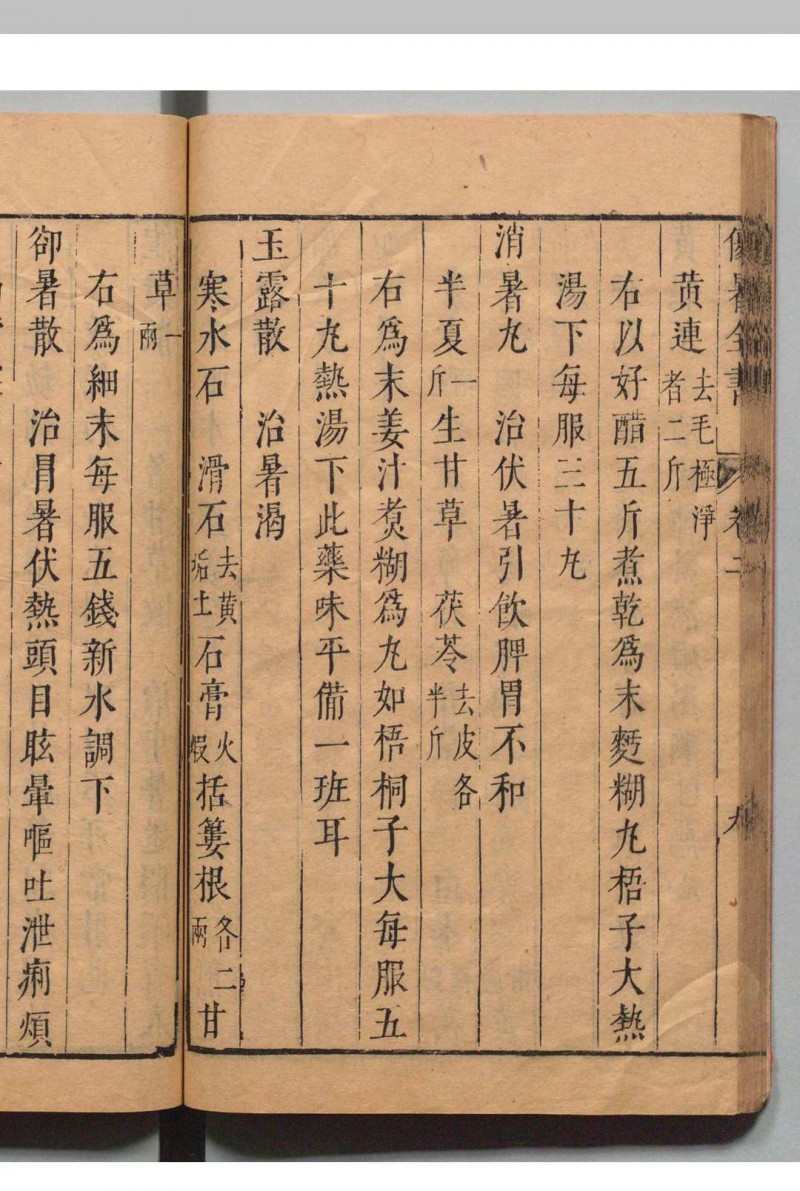 傷暑全書 卷二 九
黄連去毛極淨者二斤
右以好醋五斤煮乾爲末麪糊丸梧子大熱
湯下每服三十丸
消暑丸 治伏暑引飲脾胃不和
半夏一斤生甘草 茯苓去皮各半斤
右爲末姜汁煑糊爲丸如梧桐子大每服五
十丸熱湯下此藥味平備一班耳
玉露散 治暑渴
寒水石 滑石去黄垢土石膏火煆括蔞根各二兩甘
草一兩
右爲細末每服五錢新水調下
卻暑散 治冐暑伏熱頭目眩暈嘔吐泄痢煩